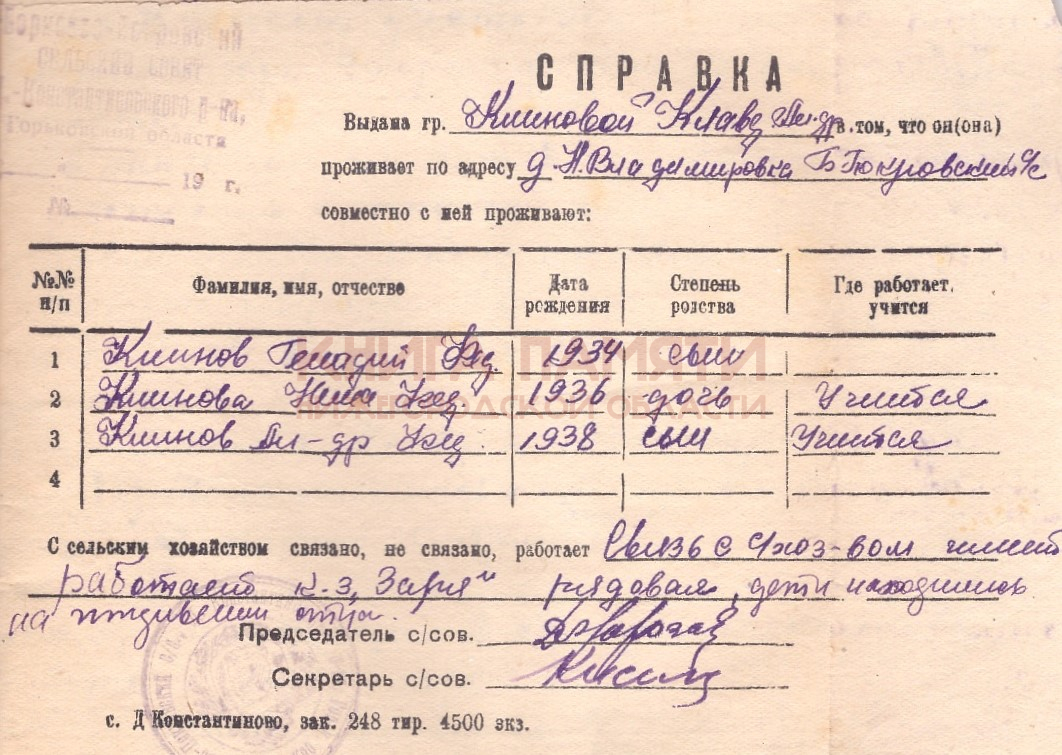 сельский совет
-Константиновского р-на,
Горьковской области
19 г.
№
СПРАВКА
Выдана гр. Климовой Клавд Ал-др в том, что он(она)
проживает по адресу д. Н. Владимировка Б Покровский с/с
совместно с ней проживают:
№№ п/п Фамилия, имя, отчество Дата рождения Степень родства Где работает, учится
1 Климов Генадий 1934 сын
КНИГА ПАМЯТИ
2 Климова Нина 1936 дочь Учится
НИЖЕГОРОДСКОЙ ОБЛАСТИ
3 Климов Ал-др 1938 сын Учится
4
С сельским хозяйством связано, не связано, работает Связь с с/хоз-вом имеет
работает к-з „Заря" рядовая, дети находились
на иждивении отца
Председатель с/сов.
Секретарь с/сов.
с. Д Константиново, зак. 248 тир. 4500 экз.